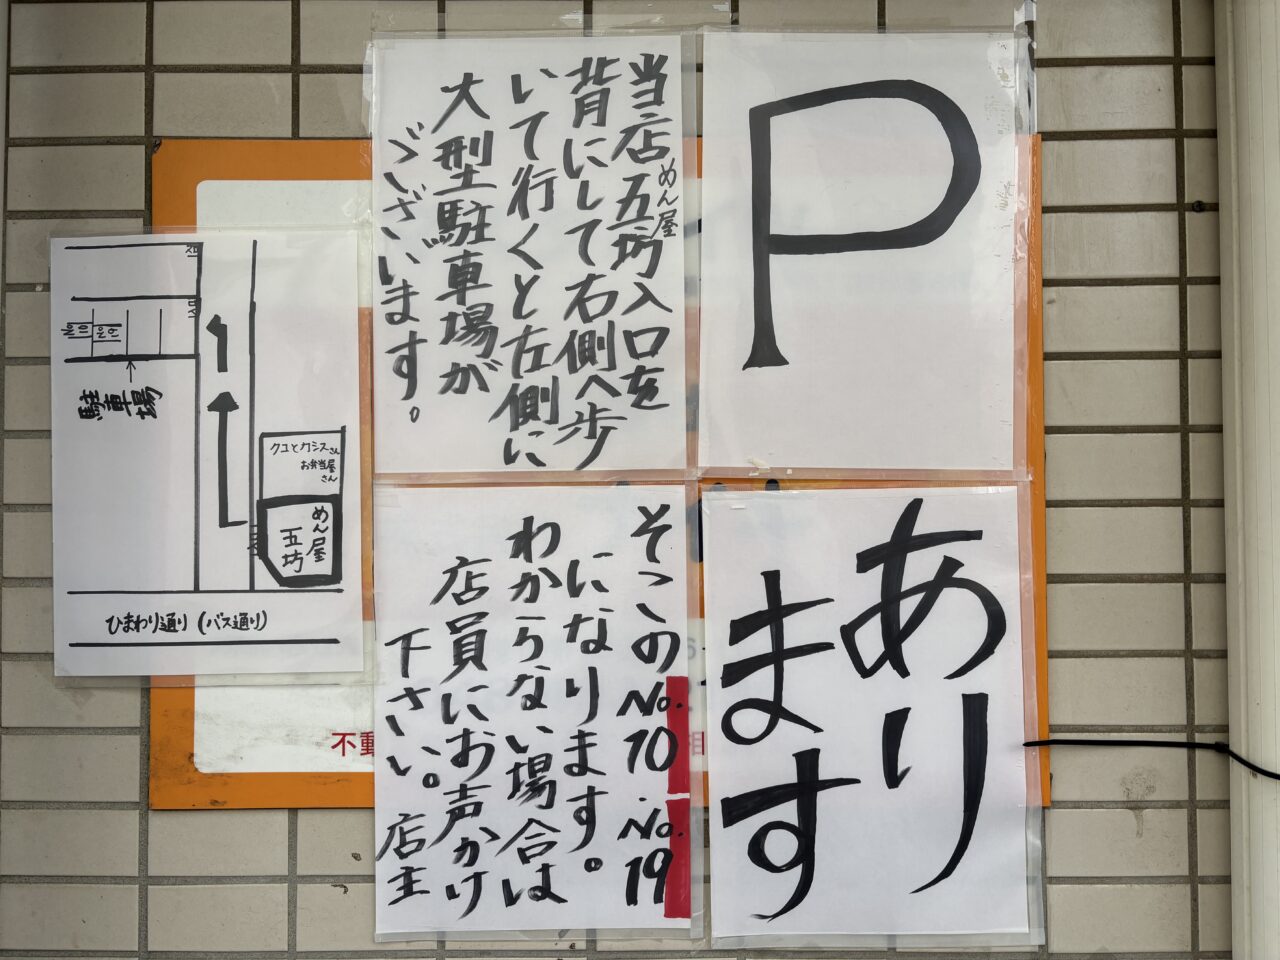 P
あり
ます
当店 めん屋 五坊入口を
背にして右側へ歩
いて行くと左側に
大型駐車場が
ございます。
そこのNo.10.No.19
になります。
わからない場合は
店員にお声かけ
下さい。店主
駐車場
クユとカシスさん
お弁当屋
さん
めん屋
五坊
ひまわり通り(バス通り)
不動